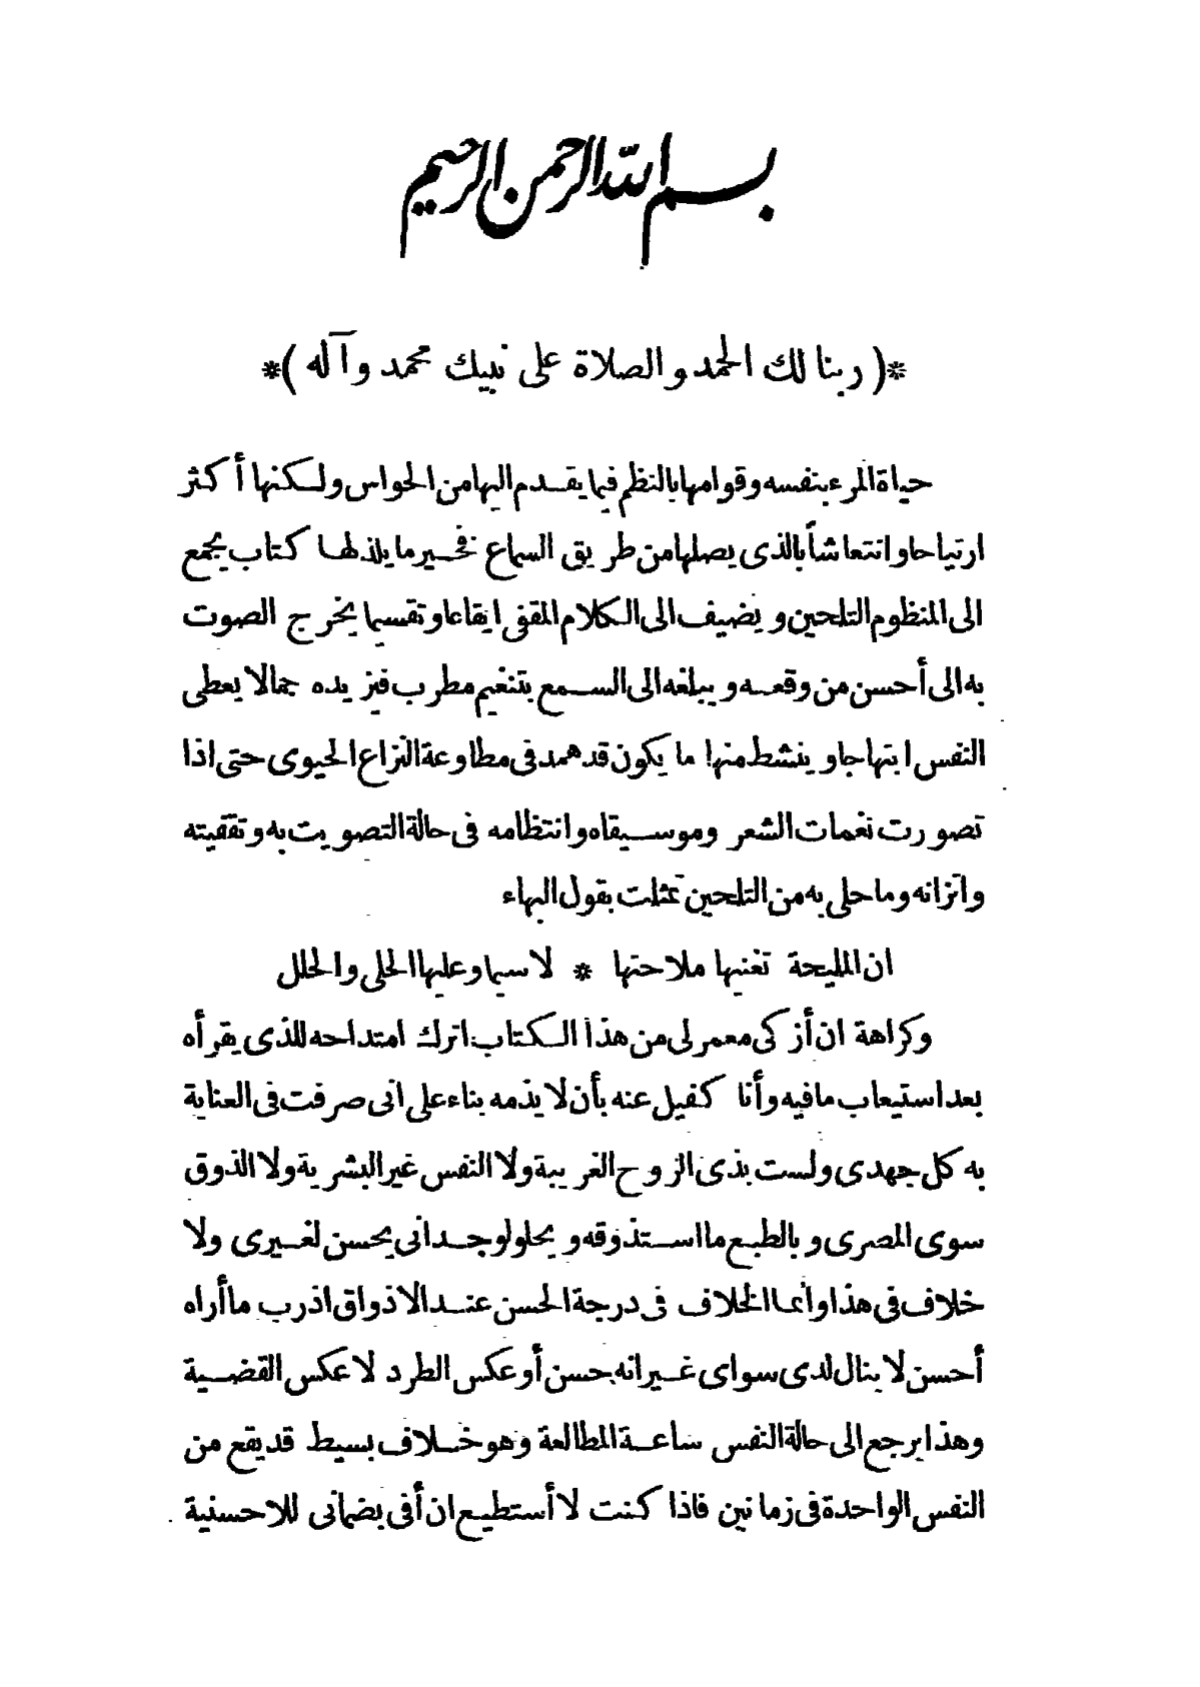 بسم الله الرحمن الرحيم
*( ربنا لك الحمد والصلاة على نبيك محمد وآله )*
حياة المرء بنفسه وقوامها بالنظم فيما يقدم اليها من الحواس ولكنها أكثر
ارتياحا وانتعاشاً بالذى يصلها من طريق السماع فخير ما يلذ لها كتاب يجمع
الى المنظوم التلحين ويضيف الى الكلام المقفى ايقاعا وتقسيما يخرج الصوت
به الى أحسن من وقعه ويبلغه الى السمع بتنغيم مطرب فيزيده جمالا يعطى
النفس ابتهاجا وينشط منها ما يكون قد همد فى مطاوعة النزاع الحيوى حتى اذا
تصورت نغمات الشعر وموسيقاه وانتظامه فى حالة التصويت به وتقفيته
واتزانه وما حلى به من التلحين تمثلت بقول البهاء
ان المليحة تغنيها ملاحتها * لا سيما وعليها الحلى والحلل
وكراهة ان أزكى معمرلى من هذا الكتاب اترك امتداحه للذى يقرأه
بعد استيعاب ما فيه وأنا كفيل عنه بأن لا يذمه بناء على انى صرفت فى العناية
به كل جهدى ولست بذى الروح الغريبة ولا النفس غير البشرية ولا الذوق
سوى المصرى وبالطبع ما استذوقه ويحلو لوجدانى يحسن لغيرى ولا
خلاف فى هذا وانما الخلاف فى درجة الحسن عند الاذواق اذ رب ما أراه
أحسن لا ينال لدى سواى غير انه حسن أو عكس الطرد لا عكس القضية
وهذا يرجع الى حالة النفس ساعة المطالعة وهو خلاف بسيط قد يقع من
النفس الواحدة فى زمانين فاذا كنت لا أستطيع ان أفى بضمانى للاحسنية